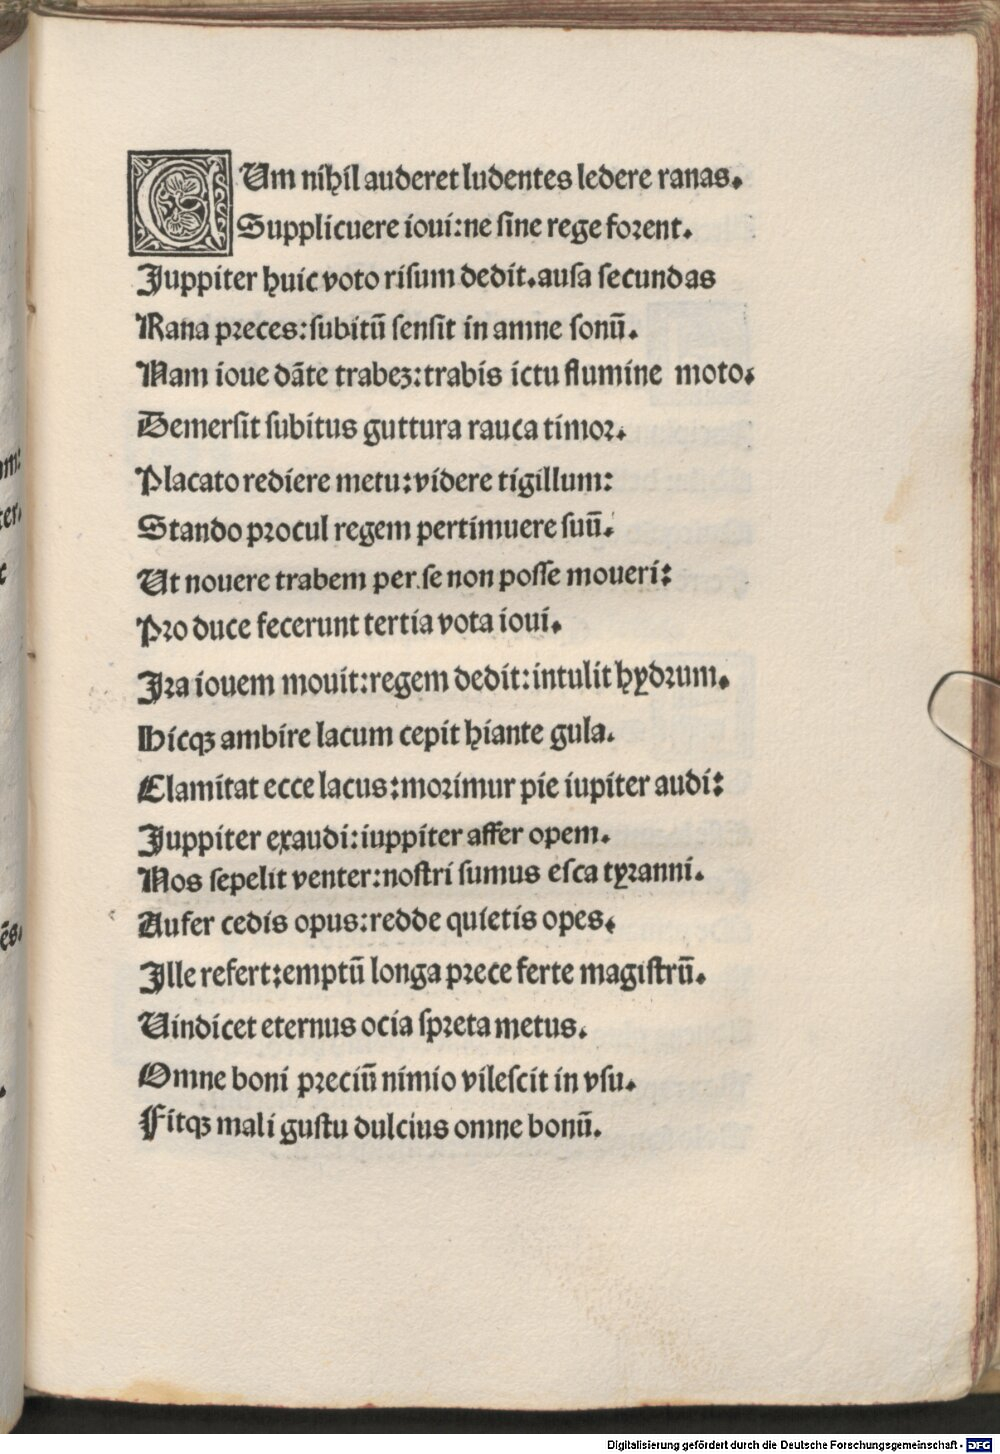 CUm nihil auderet ludentes ledere ranas.
Supplicuere ioui:ne sine rege forent.
Juppiter huic voto risum dedit.ausa secundas
Rana preces:subitū sensit in amne sonū.
Nam ioue dāte trabeȝ:trabis ictu flumine moto.
Demersit subitus guttura rauca timor.
Placato rediere metu:videre tigillum:
Stando procul regem pertimuere suū.
Ut nouere trabem per se non posse moueri:
Pro duce fecerunt tertia vota ioui.
Ira iouem mouit:regem dedit:intulit hydrum.
Hicqȝ ambire lacum cepit hiante gula.
Clamitat ecce lacus:morimur pie iupiter audi:
Juppiter exaudi:iuppiter affer opem.
Nos sepelit venter:nostri sumus esca tyranni.
Aufer cedis opus:redde quietis opes.
Ille refert:emptū longa prece ferte magistrū.
Uindicet eternus ocia spreta metus.
Omne boni preciū nimio vilescit in vsu.
Fitqȝ mali gustu dulcius omne bonū.
Digitalisierung gefördert durch die Deutsche Forschungsgemeinschaft - DFG